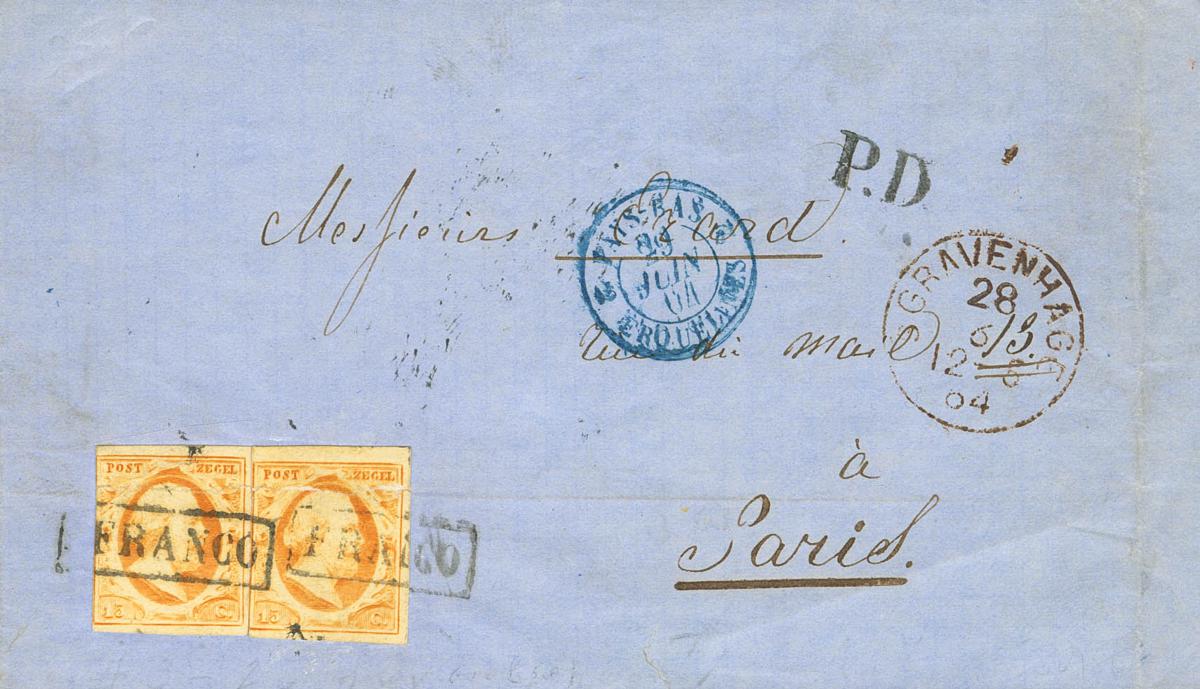 P.D
Messieurs Erard.
PAYS-BAS
29
JUIN
64
ERQUELINES
GRAVENHAGE
28
6
12
64
Rue du mail 13.
à
Paris.
POST ZEGEL POST ZEGEL
FRANCO FRANCO
15 C. 15 C.